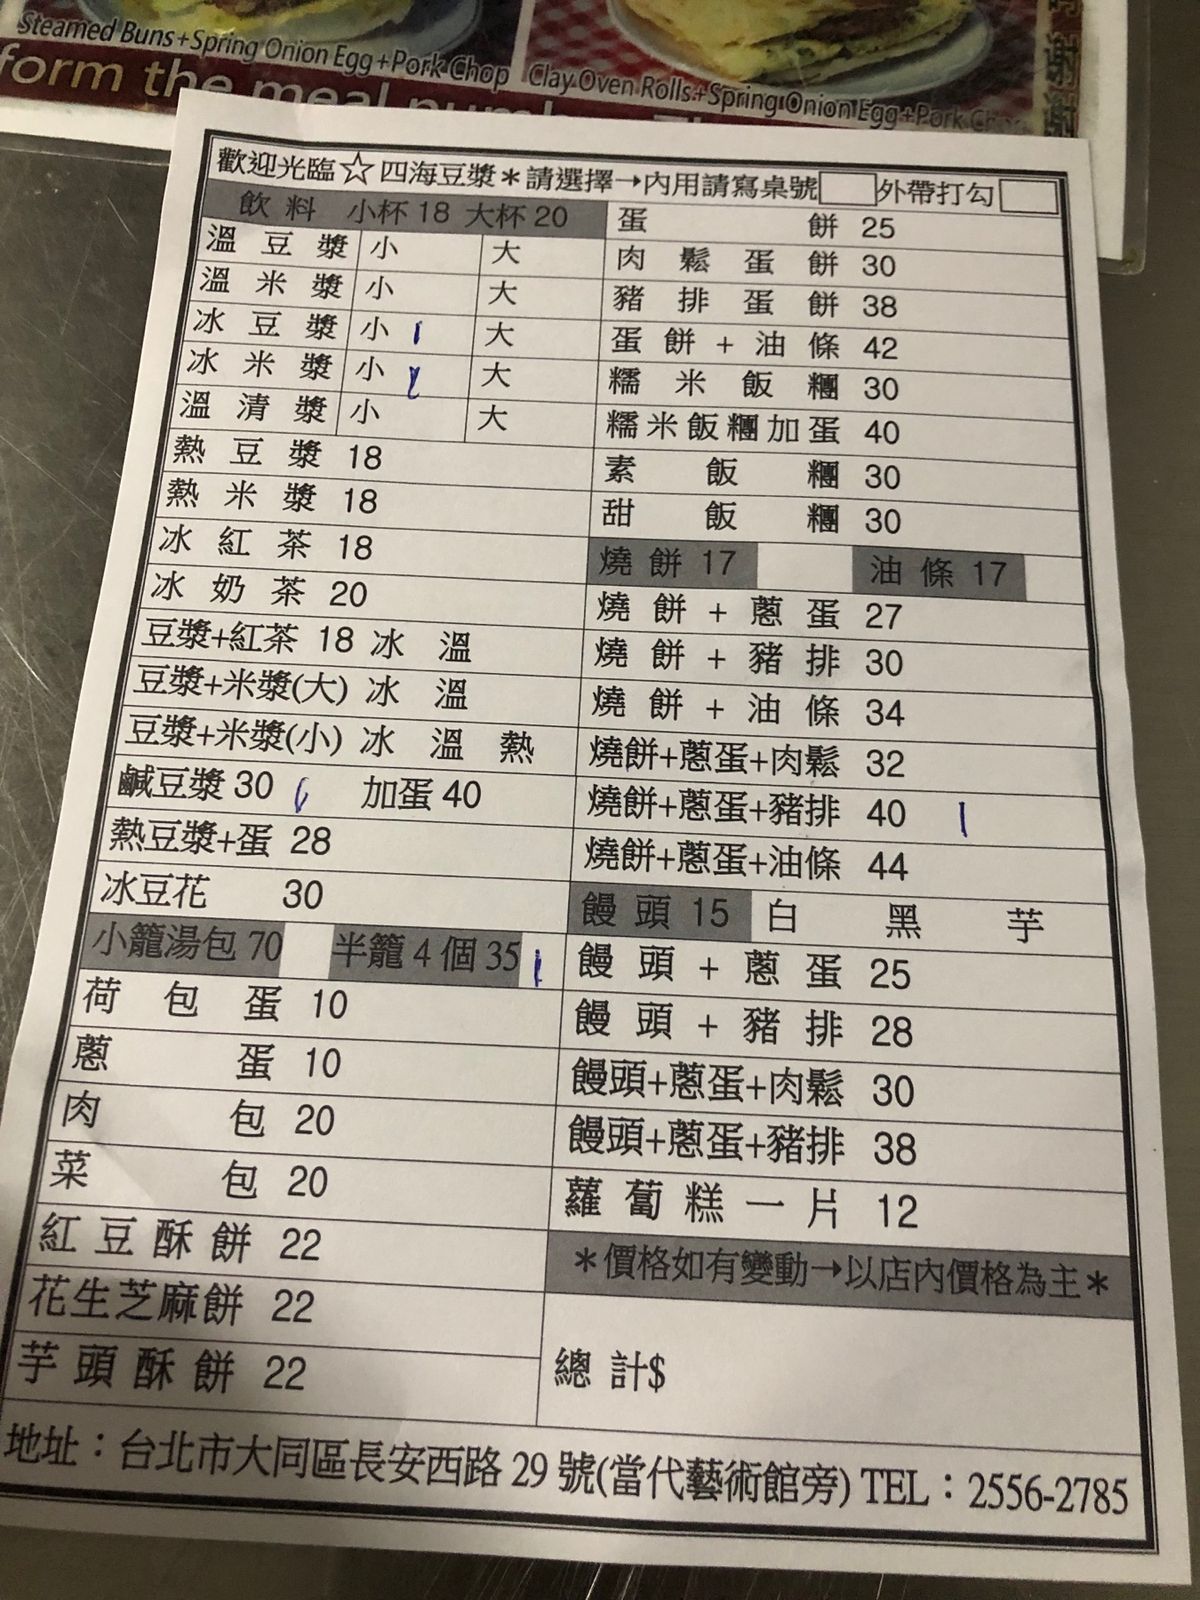 Steamed Buns+Spring Onion Egg+Pork Chop
Clay Oven Rolls+Spring Onion Egg+Pork
form the meal
歡迎光臨☆四海豆漿＊請選擇→內用請寫桌號 外帶打勾
飲料 小杯 18 大杯 20
溫豆漿 小 大
溫米漿 小 大
冰豆漿 小 1 大
冰米漿 小 大
溫清漿 小 大
熱豆漿 18
熱米漿 18
冰紅茶 18
冰奶茶 20
豆漿+紅茶 18 冰 溫
豆漿+米漿(大) 冰 溫
豆漿+米漿(小) 冰 溫 熱
鹹豆漿 30 1 加蛋 40
熱豆漿+蛋 28
冰豆花 30
小籠湯包 70 半籠 4 個 35 1
荷包蛋 10
蔥蛋 10
肉包 20
菜包 20
紅豆酥餅 22
花生芝麻餅 22
芋頭酥餅 22
蛋餅 25
肉鬆蛋餅 30
豬排蛋餅 38
蛋餅+油條 42
糯米飯糰 30
糯米飯糰加蛋 40
素飯糰 30
甜飯糰 30
燒餅 17 油條 17
燒餅+蔥蛋 27
燒餅+豬排 30
燒餅+油條 34
燒餅+蔥蛋+肉鬆 32
燒餅+蔥蛋+豬排 40 1
燒餅+蔥蛋+油條 44
饅頭 15 白 黑 芋
饅頭+蔥蛋 25
饅頭+豬排 28
饅頭+蔥蛋+肉鬆 30
饅頭+蔥蛋+豬排 38
蘿蔔糕一片 12
＊價格如有變動→以店內價格為主＊
總計$
地址：台北市大同區長安西路 29 號(當代藝術館旁) TEL：2556-2785